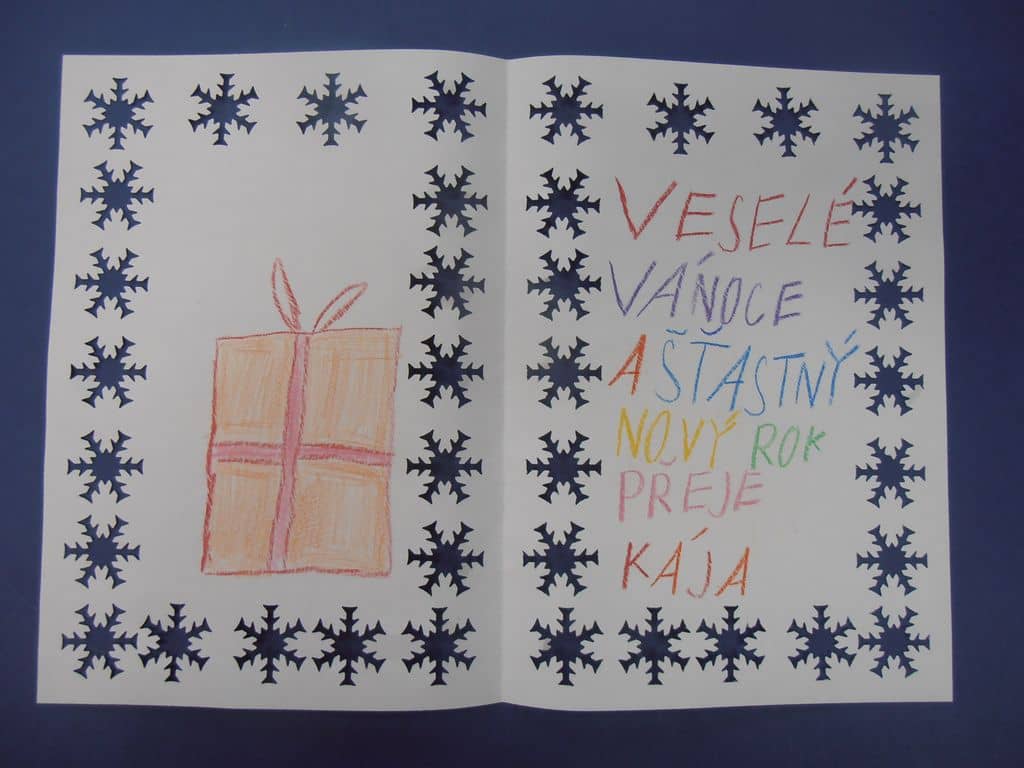 VESELÉ
VÁŃOCE
A ŠŤASTNÝ
NOVÝ ROK
PŘEJE
KÁJA